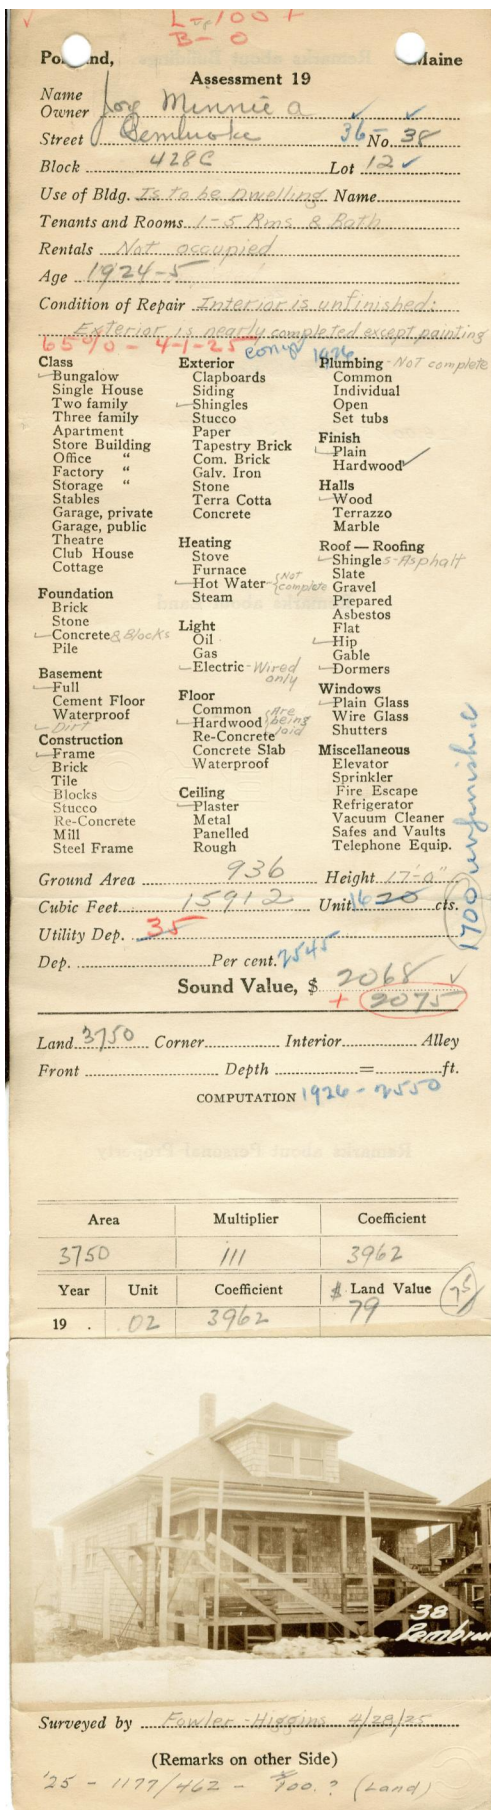 L-100+
B-0
Portland, Maine
Assessment 19
Name
Owner Minnie a
Street Pembroke 36- No. 38
Block 428C Lot 12
Use of Bldg. Is to be Dwelling Name
Tenants and Rooms 1-5 Rms & Bath
Rentals Not occupied
Age 1924-5
Condition of Repair Interior is unfinished:
Exterior is nearly completed except painting
65% - 4-1-25 comp 1926
Class
Bungalow
Single House
Two family
Three family
Apartment
Store Building
Office "
Factory "
Storage "
Stables
Garage, private
Garage, public
Theatre
Club House
Cottage
Foundation
Brick
Stone
Concrete & Blocks
Pile
Basement
Full
Cement Floor
Waterproof
Dirt
Construction
Frame
Brick
Tile
Blocks
Stucco
Re-Concrete
Mill
Steel Frame
Exterior
Clapboards
Siding
Shingles
Stucco
Paper
Tapestry Brick
Com. Brick
Galv. Iron
Stone
Terra Cotta
Concrete
Heating
Stove
Furnace
Hot Water - Not complete
Steam
Light
Oil
Gas
Electric - Wired only
Floor
Common
Hardwood Are being laid
Re-Concrete
Concrete Slab
Waterproof
Ceiling
Plaster
Metal
Panelled
Rough
Plumbing - Not complete
Common
Individual
Open
Set tubs
Finish
Plain
Hardwood
Halls
Wood
Terrazzo
Marble
Roof — Roofing
Shingles - Asphalt
Slate
Gravel
Prepared
Asbestos
Flat
Hip
Gable
Dormers
Windows
Plain Glass
Wire Glass
Shutters
Miscellaneous
Elevator
Sprinkler
Fire Escape
Refrigerator
Vacuum Cleaner
Safes and Vaults
Telephone Equip.
1700 unfinished
Ground Area 936 Height 17'-0"
Cubic Feet 15912 Unit 16 20 cts.
Utility Dep. 35
Dep. Per cent. 2545
Sound Value, $ 2068
+ 2075
Land 3750 Corner Interior Alley
Front Depth = ft.
COMPUTATION 1926 - 2550
Area Multiplier Coefficient
3750 111 3962
Year Unit Coefficient $ Land Value 75
19 . .02 3962 79
38
Pembroke
Surveyed by Fowler-Higgins 4/28/25
(Remarks on other Side)
'25 - 1177/462 - $100.? (Land)